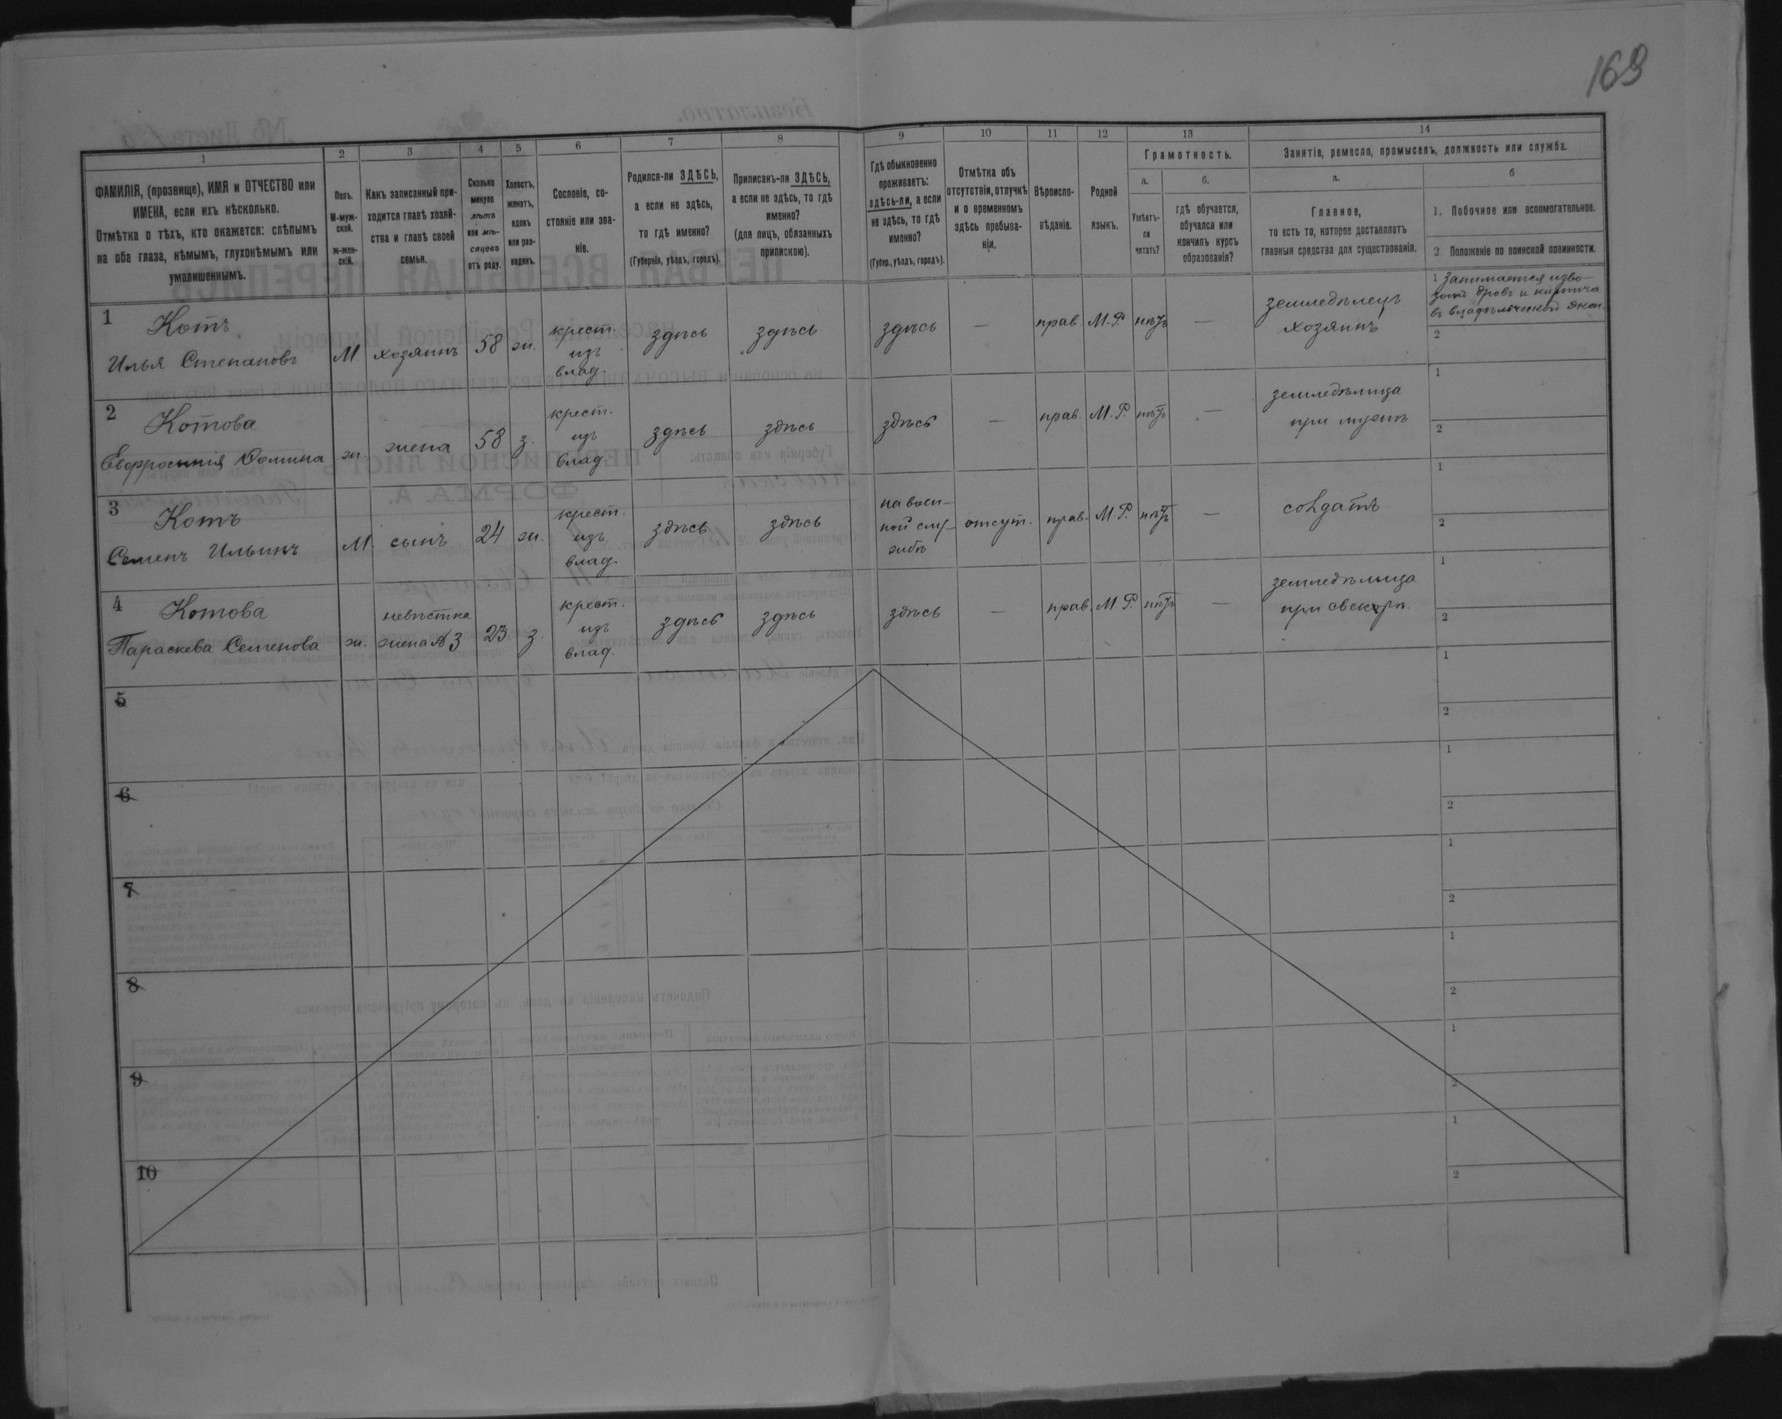 169
1
2
3
4
5
6
7
8
9
10
11
12
13
14
ФАМИЛІЯ, (прозвище), ИМЯ и ОТЧЕСТВО или
ИМЕНА, если ихъ нѣсколько.
Отмѣтка о тѣхъ, кто окажется: слѣпымъ
на оба глаза, нѣмымъ, глухонѣмымъ или
умалишеннымъ.
Полъ.
М-муж-
ской.
ж-жен-
скій.
Какъ записанный при-
ходится главѣ хозяй-
ства и главѣ своей
семьи.
Сколько
минуло
лѣтъ
или мѣ-
сяцевъ
отъ роду.
Холостъ,
женатъ,
вдовъ
или раз-
веденъ.
Сословіе, со-
стояніе или зва-
ніе.
Родился-ли ЗДѢСЬ,
а если не здѣсь,
то гдѣ именно?
(Губернія, уѣздъ, городъ).
Приписанъ-ли ЗДѢСЬ,
а если не здѣсь, то гдѣ
именно?
(для лицъ, обязанныхъ
припискою).
Гдѣ обыкновенно
проживаетъ:
здѣсь-ли, а если
не здѣсь, то гдѣ
именно?
(Губер., уѣздъ, городъ).
Отмѣтка объ
отсутствіи, отлучкѣ
и о временномъ
здѣсь пребыва-
ніи.
Вѣроиспо-
вѣданіе.
Родной
языкъ.
Грамотность.
а.
Умѣетъ-
ли
читать?
б.
гдѣ обучается,
обучался или
кончилъ курсъ
образованія?
Занятіе, ремесло, промыселъ, должность или служба.
а.
Главное,
то есть то, которое доставляетъ
главныя средства для существованія.
б
1. Побочное или вспомогательное.
2 Положеніе по воинской повинности.
1 Котъ
Илья Степановъ
М
хозяинъ
58
ж.
крест.
изъ
влад.
здѣсь
здѣсь
здѣсь
—
прав.
М.Р.
нѣтъ
—
земледѣлецъ
хозяинъ
1 Занимается изво-
зомъ дровъ и кирпича
въ владѣльческой экон.
2
2 Котова
Евфросинія Фомина
ж
жена
58
з.
крест.
изъ
влад.
здѣсь
здѣсь
здѣсь
—
прав.
М.Р.
нѣтъ
—
земледѣлица
при мужѣ
1
2
3 Котъ
Семенъ Ильинъ
М
сынъ
24
ж.
крест.
изъ
влад.
здѣсь
здѣсь
на воен-
ной слу-
жбѣ
отсут.
прав.
М.Р.
нѣтъ
—
солдатъ
1
2
4 Котова
Параскева Семенова
ж.
невѣстка
жена №3
23
з.
крест.
изъ
влад.
здѣсь
здѣсь
здѣсь
—
прав.
М.Р.
нѣтъ
—
земледѣлица
при свекорѣ.
1
2
5
1
2
6
1
2
7
1
2
8
1
2
9
1
2
10
1
2